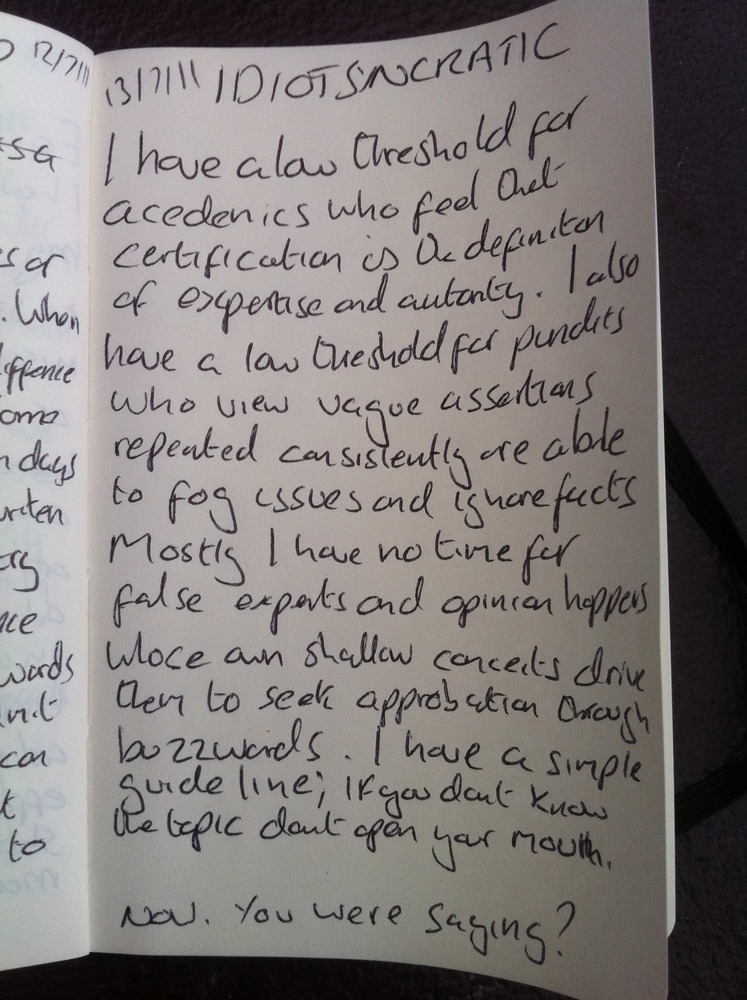 12/7/11
sor
. When
days
words
can
to
13/7/11 IDIOTSINCRATIC
I have a low threshold for
acedenics who feel that
certification is the definiton
of expertise and autority. I also
have a low threshold for pundits
who view vague assertions
repeated consistently are able
to fog issues and ignore facts
Mostly I have no time for
false experts and opinion hoppers
whose own shallow conceits drive
them to seek approbation through
buzzwords. I have a simple
guideline; If you dont know
the topic dont open your mouth.
Now. You were saying?